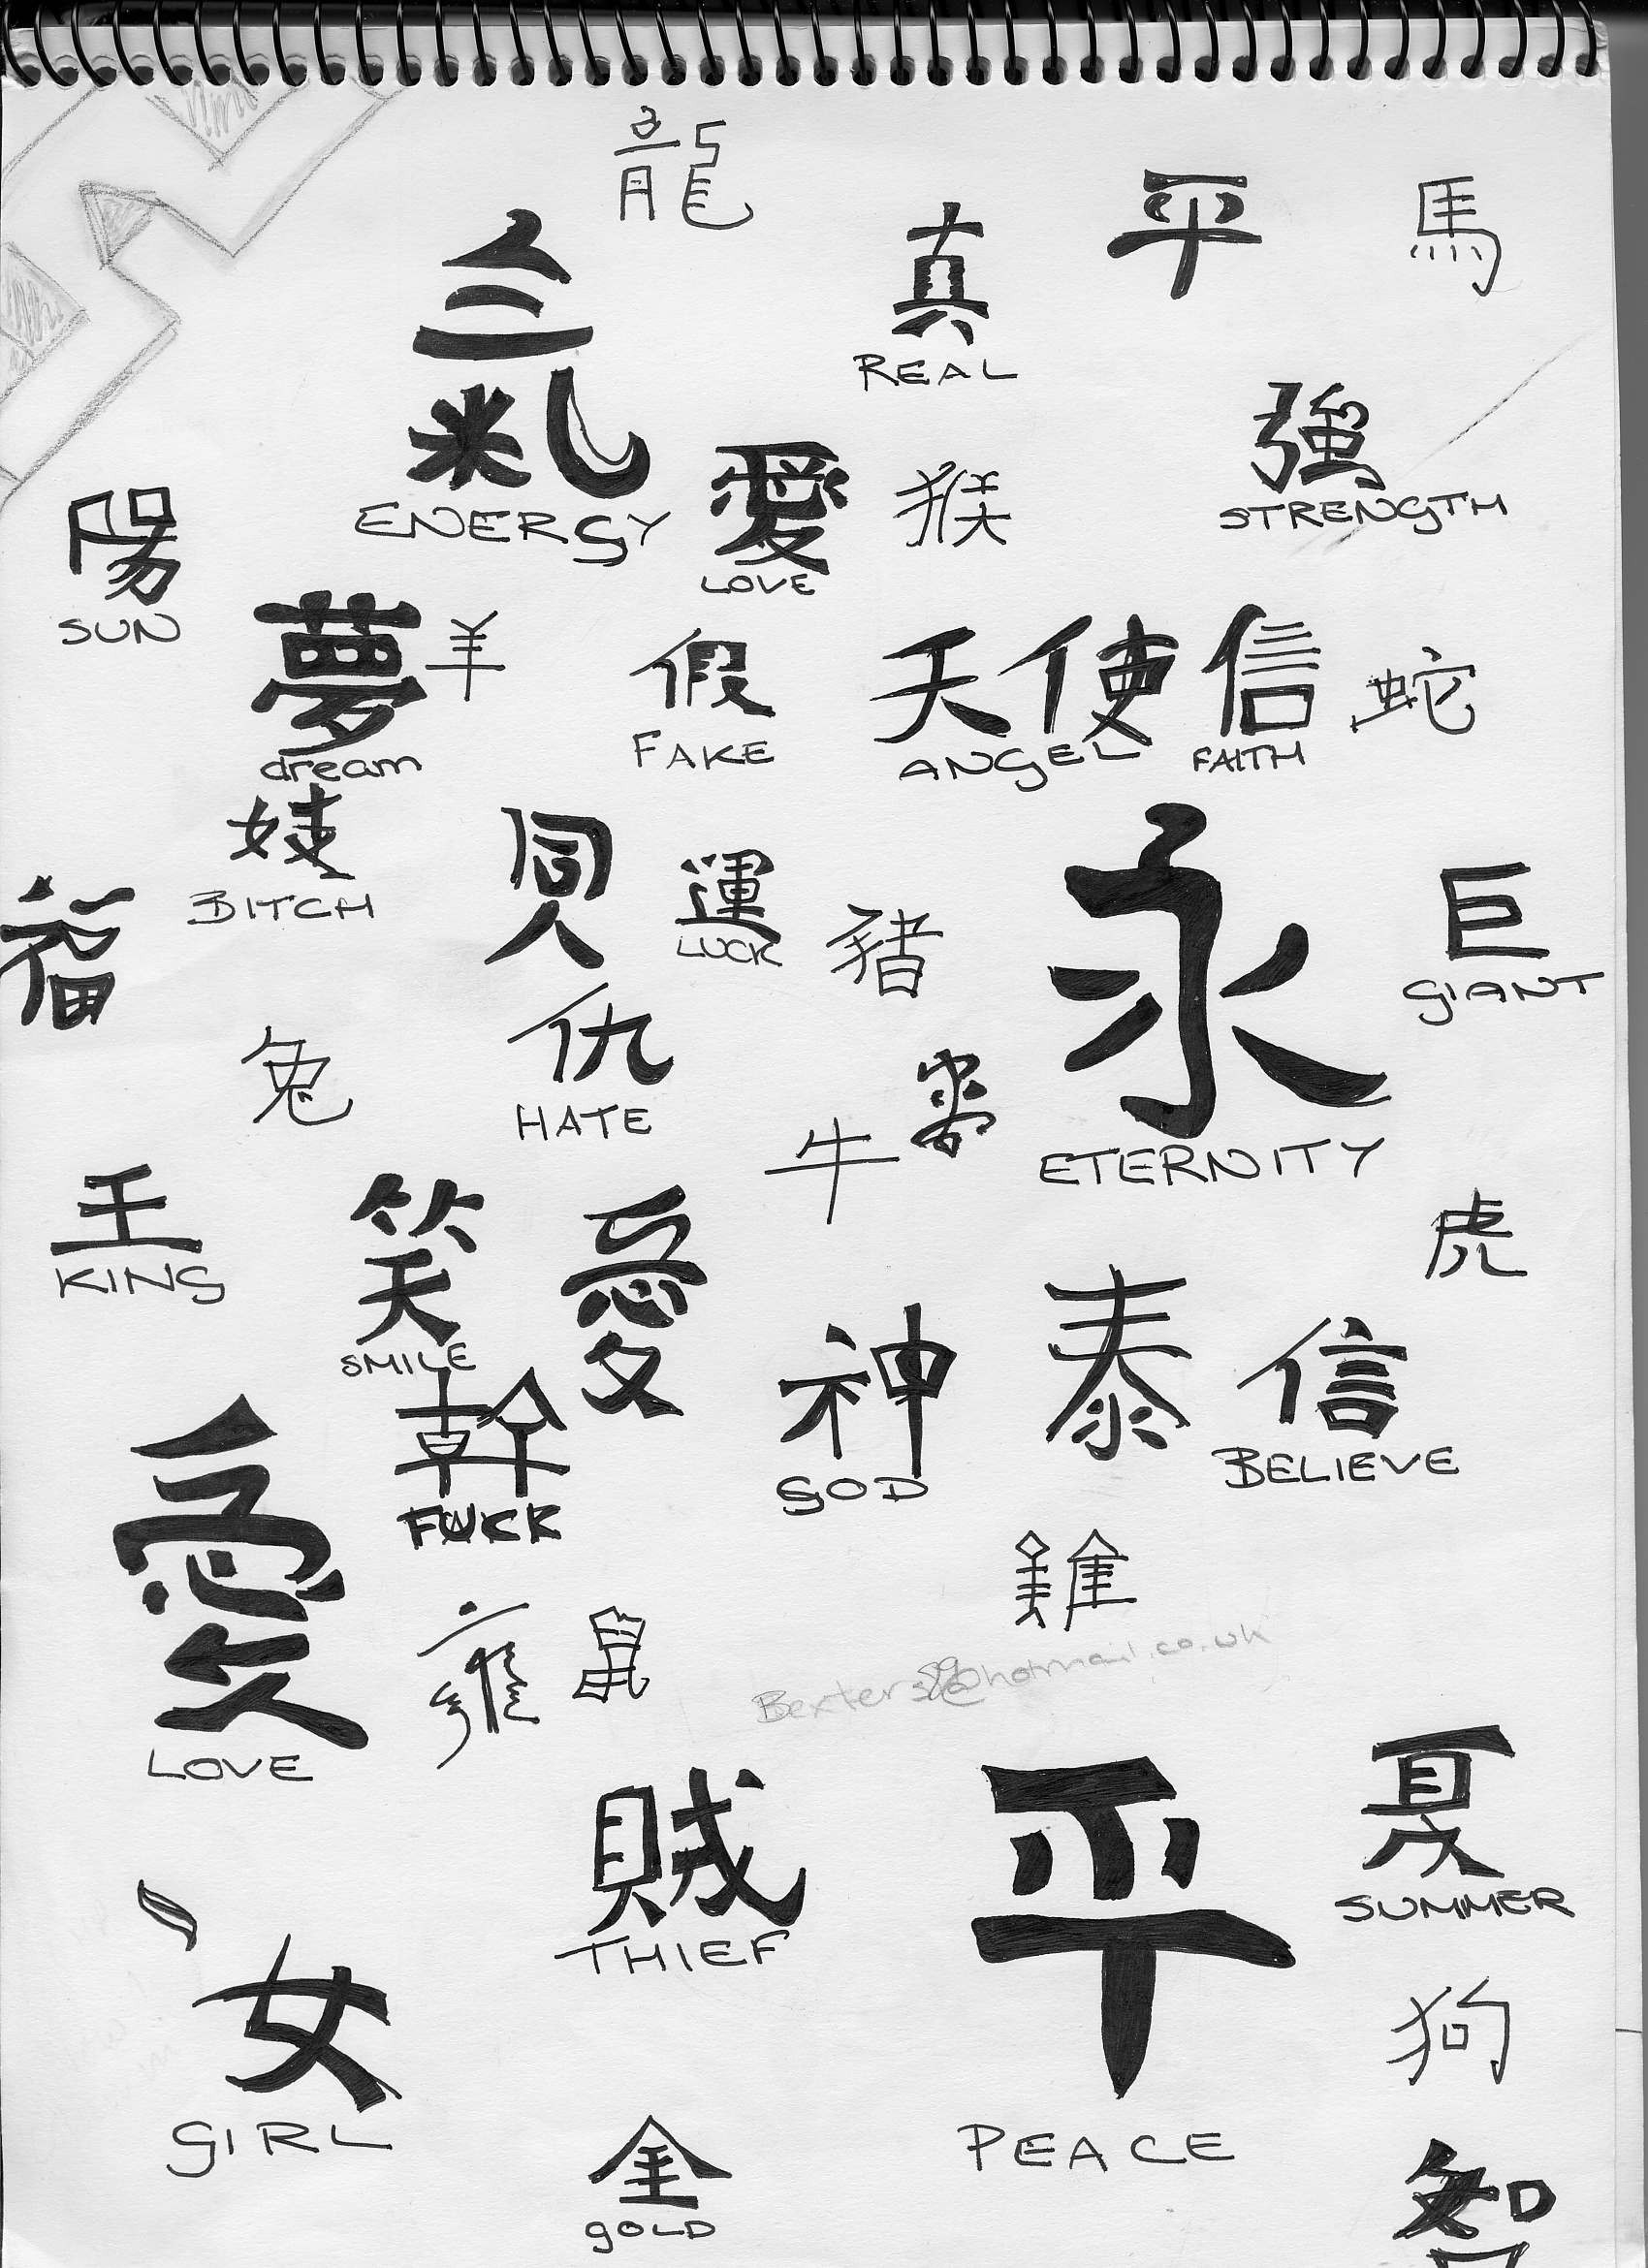 龍
平
馬
真
REAL
氣
ENERGY
強
STRENGTH
愛
LOVE
猴
陽
SUN
夢
dream
羊
假
FAKE
天使
ANGEL
信
FAITH
蛇
BITCH
運
LUCK
豬
永
ETERNITY
巨
GIANT
福
兔
仇
HATE
牛
王
KING
笑
SMILE
愛
虎
神
GOD
泰
信
BELIEVE
幹
FUCK
愛
LOVE
雞
鼠
Bexters89@hotmail.co.uk
賊
THIEF
平
PEACE
夏
SUMMER
女
GIRL
狗
金
GOLD
智